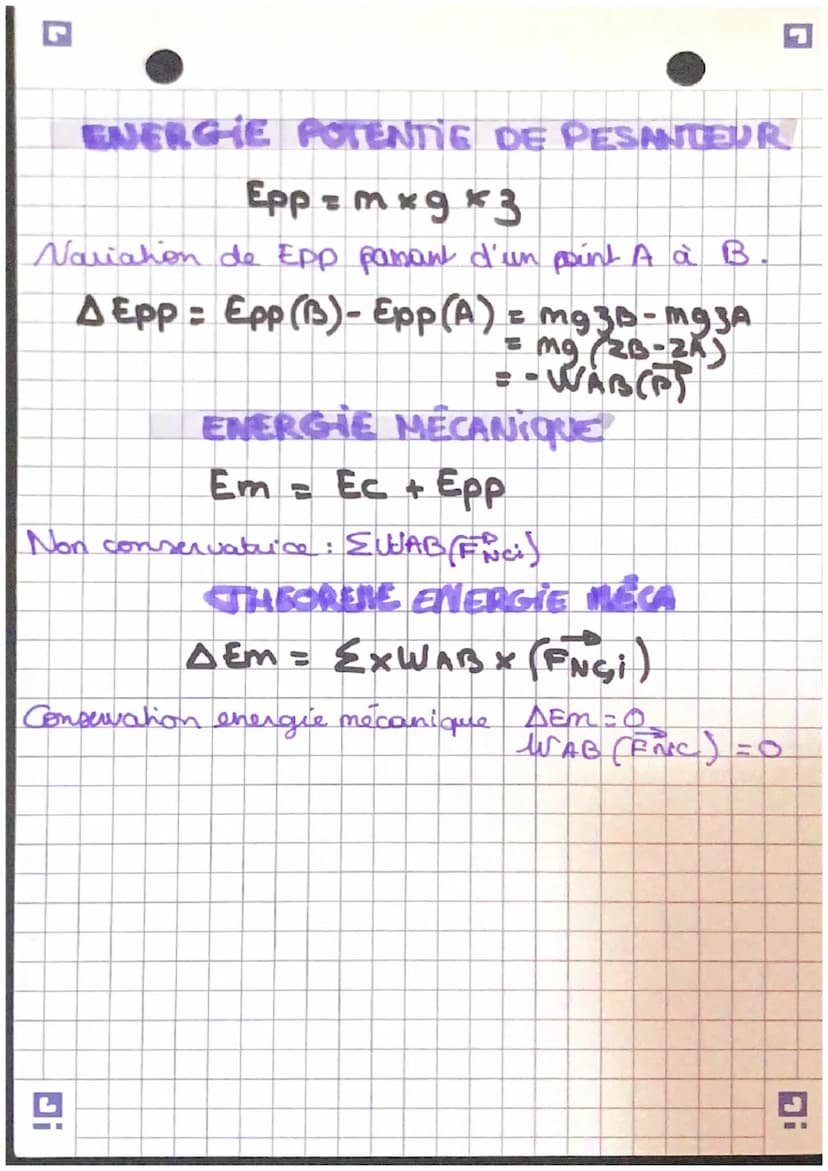 ENERGIE POTENTIE DE PESANTEUR
Epp = m × g × z
Variation de Epp passant d'un point A à B.
ΔEpp = Epp(B) - Epp(A) = mgzB - mgzA
= mg(zB-zA)
= -WAB(P⃗)
ENERGIE MÉCANIQUE
Em = Ec + Epp
Non conservatrice : ΣWAB(F⃗NCi)
THEOREME ENERGIE MÉCA
ΔEm = Σ×WAB×(F⃗NC,i)
Conservation energie mécanique ΔEm=0
WAB(F⃗NC)=0